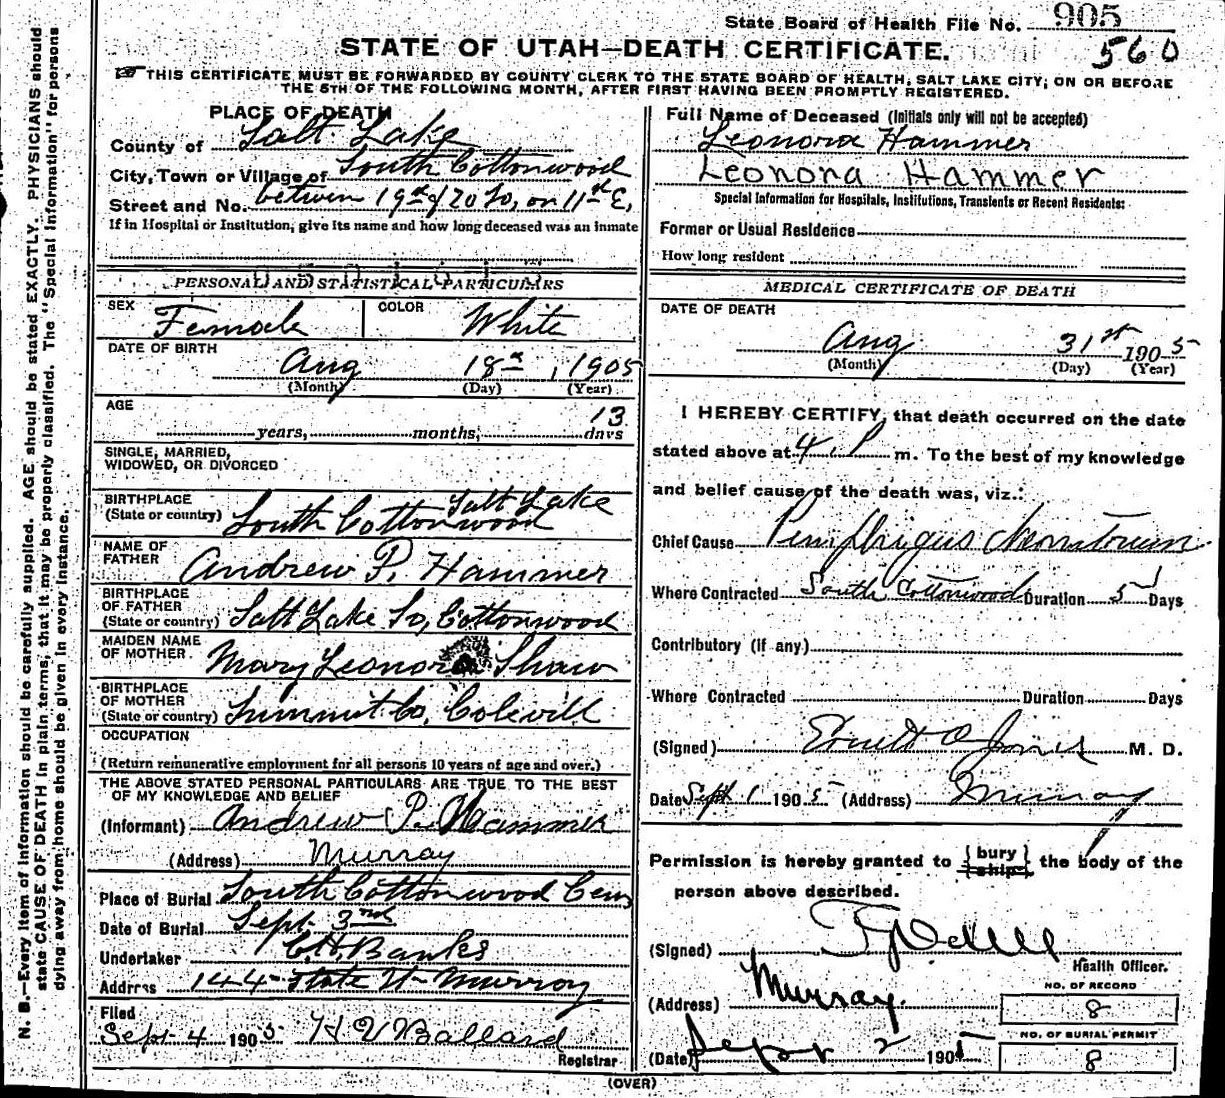 State Board of Health File No. 905
560
STATE OF UTAH—DEATH CERTIFICATE.
☞ THIS CERTIFICATE MUST BE FORWARDED BY COUNTY CLERK TO THE STATE BOARD OF HEALTH, SALT LAKE CITY, ON OR BEFORE
THE 5TH OF THE FOLLOWING MONTH, AFTER FIRST HAVING BEEN PROMPTLY REGISTERED.
N. B.—Every item of information should be carefully supplied. AGE should be stated EXACTLY. PHYSICIANS should
state CAUSE OF DEATH in plain terms, that it may be properly classified. The "Special Information" for persons
dying away from home should be given in every instance.
PLACE OF DEATH
County of Salt Lake
City, Town or Village of South Cottonwood
Street and No. between 19th & 20 So, on 11th E,
If in Hospital or Institution, give its name and how long deceased was an inmate
PERSONAL AND STATISTICAL PARTICULARS
SEX Female COLOR White
DATE OF BIRTH
Aug 18th, 1905
(Month) (Day) (Year)
AGE
years, months, 13 days
SINGLE, MARRIED,
WIDOWED, OR DIVORCED
BIRTHPLACE
(State or country) South Cottonwood Salt Lake
NAME OF
FATHER Andrew P. Hammer
BIRTHPLACE
OF FATHER
(State or country) Salt Lake So, Cottonwood
MAIDEN NAME
OF MOTHER Mary Leonora Shaw
BIRTHPLACE
OF MOTHER
(State or country) Summit Co, Colevill
OCCUPATION
(Return remunerative employment for all persons 10 years of age and over.)
THE ABOVE STATED PERSONAL PARTICULARS ARE TRUE TO THE BEST
OF MY KNOWLEDGE AND BELIEF
(Informant) Andrew P. Hammer
(Address) Murray
Place of Burial South Cottonwood Cem
Date of Burial Sept. 3rd
Undertaker C.H. Banks
Address 144 State St Murray
Filed
Sept 4 1905 H V Ballard
Registrar
Full Name of Deceased (Initials only will not be accepted)
Leonora Hammer
Leonora Hammer
Special Information for Hospitals, Institutions, Transients or Recent Residents:
Former or Usual Residence
How long resident
MEDICAL CERTIFICATE OF DEATH
DATE OF DEATH
Aug 31st 1905
(Month) (Day) (Year)
I HEREBY CERTIFY, that death occurred on the date
stated above at 4 P m. To the best of my knowledge
and belief cause of the death was, viz.:
Chief Cause Pemphigus
Where Contracted South Cottonwood Duration 5 Days
Contributory (if any)
Where Contracted Duration Days
(Signed) Jones M. D.
Date Sept 1 1905 (Address) Murray
Permission is hereby granted to { bury ship } the body of the
person above described.
(Signed)
Health Officer.
(Address) Murray.
(Date) Sept 2 1905
NO. OF RECORD
8
NO. OF BURIAL PERMIT
8
(OVER)